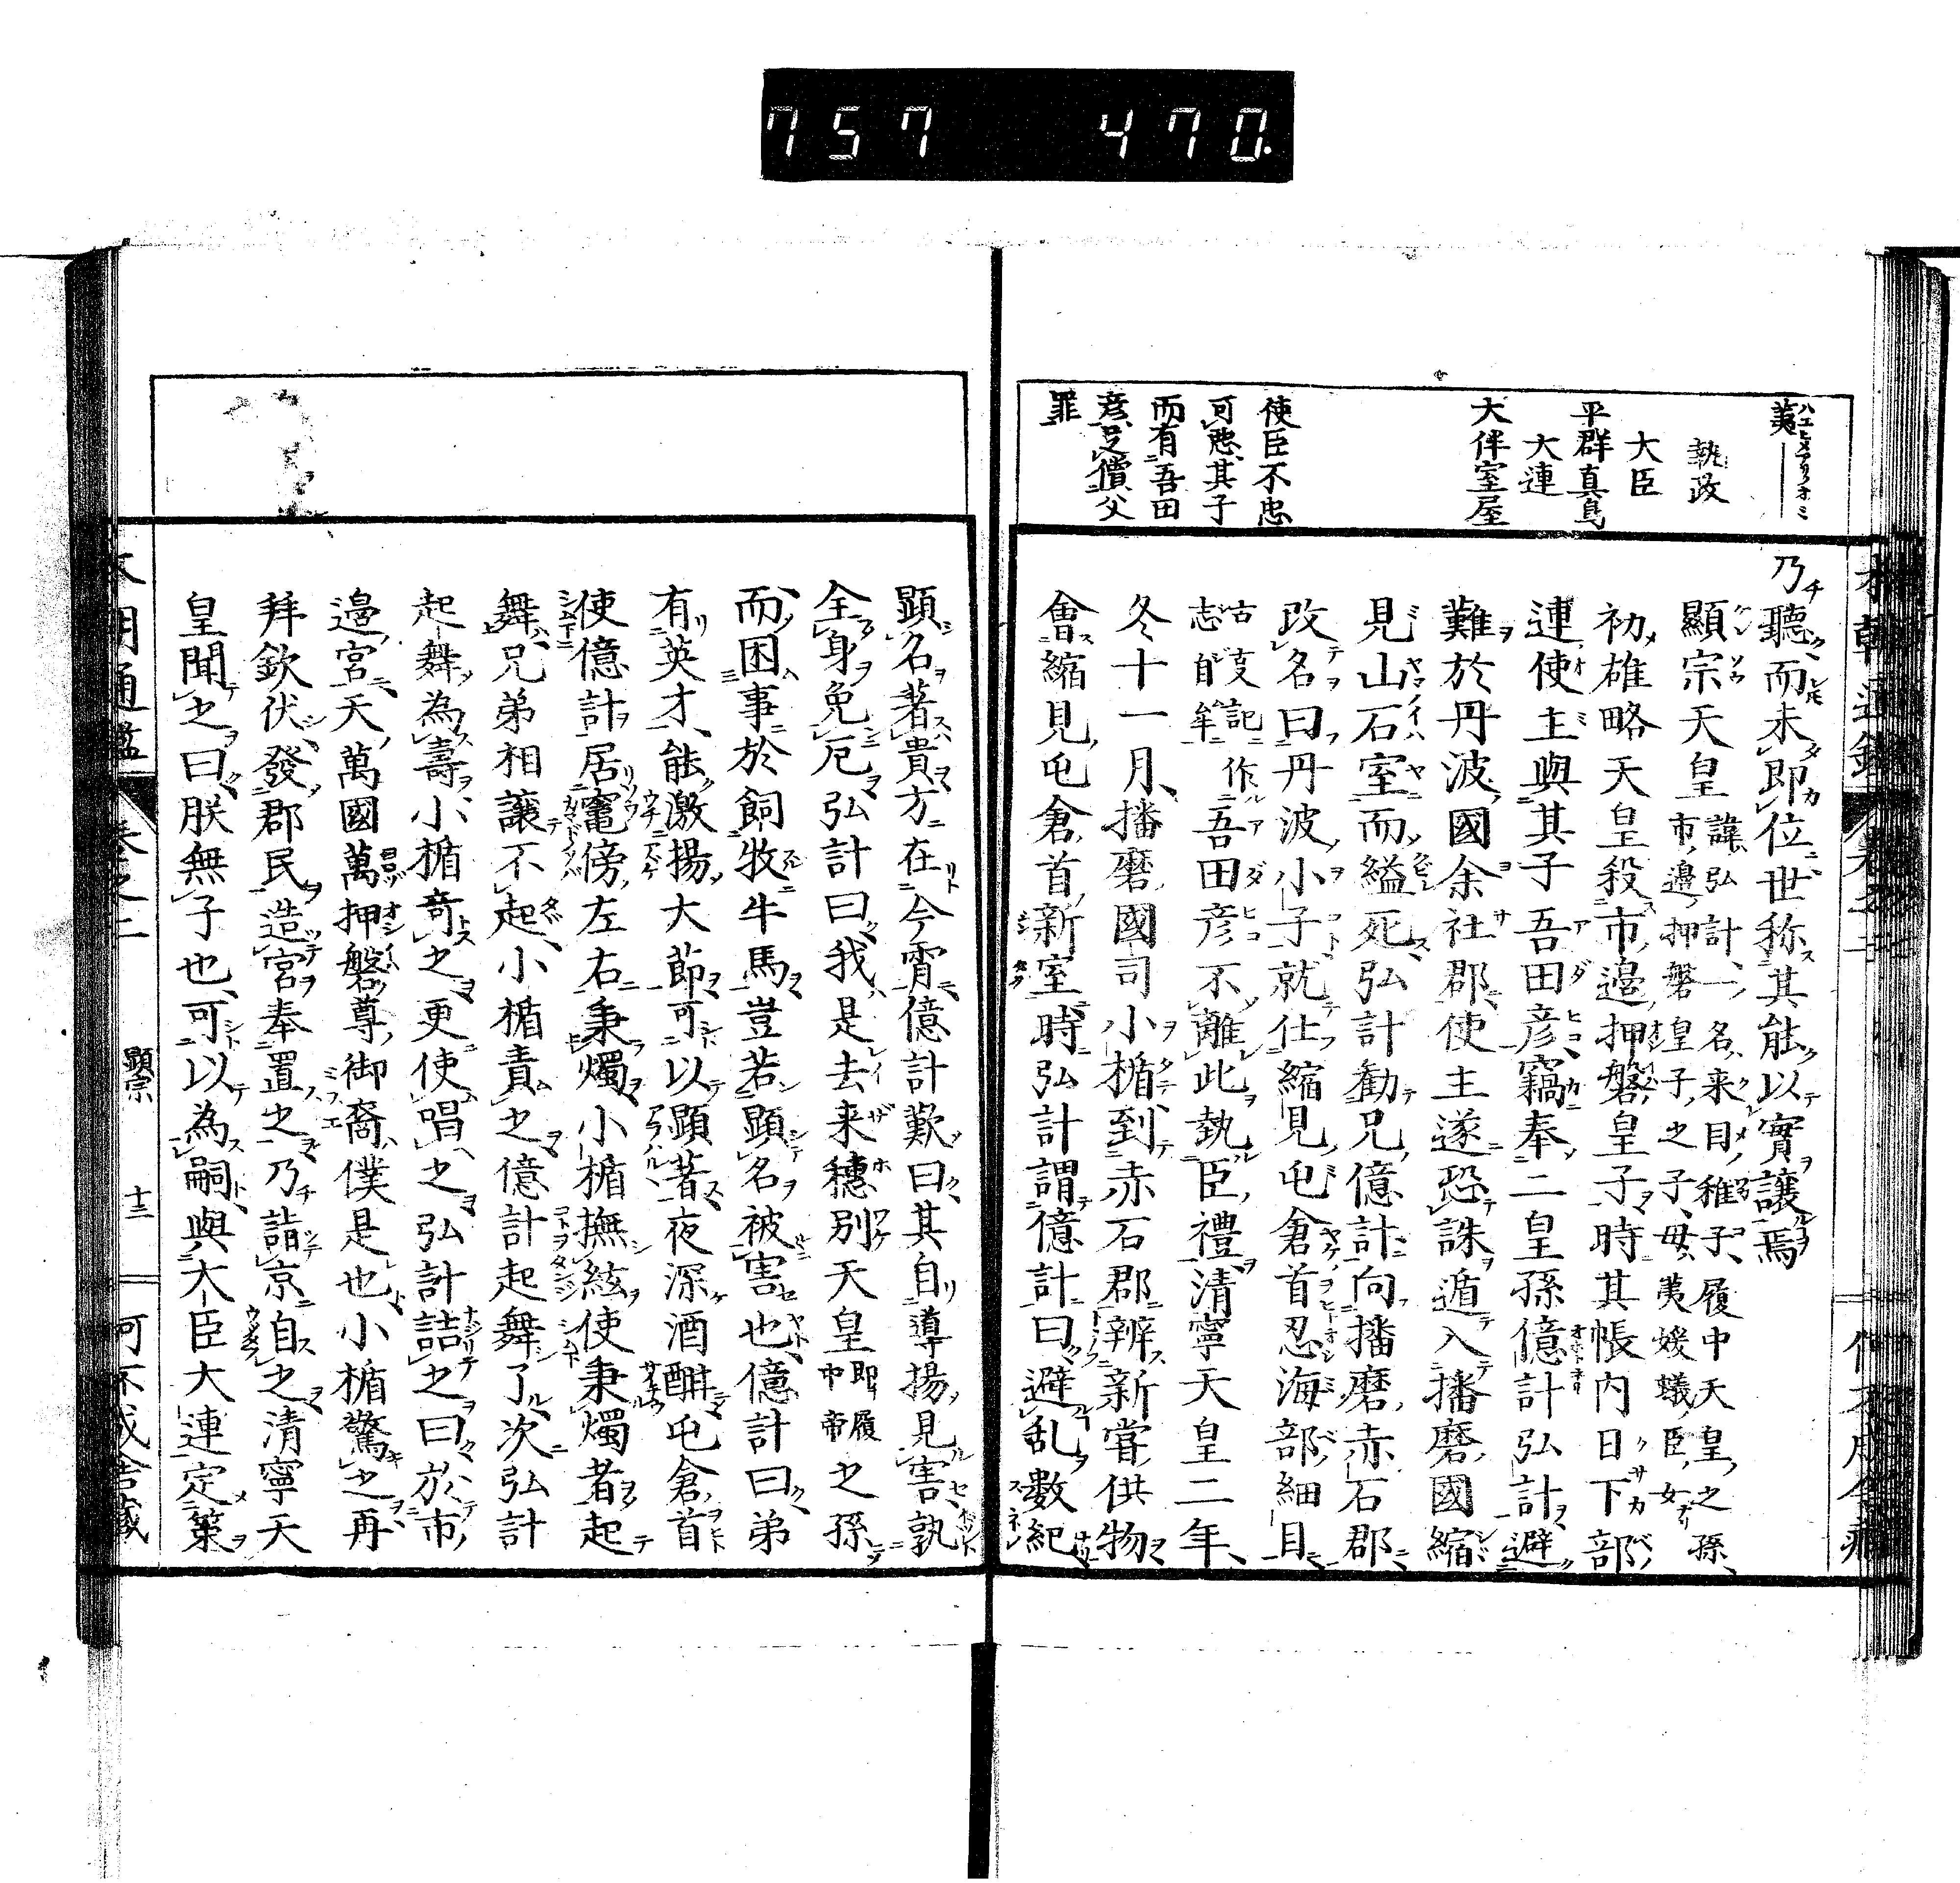 757 470.
夷
執政
大臣
平群真鳥
大連
大伴室屋
使臣不忠
可悪其子
而有吾田
彦足償父
罪
乃聽而未即位世称其能以實讓焉
顯宗天皇
諱弘計一名来目稚子履中天皇之孫
市邊押磐皇子之子母夷媛蟻臣女
初雄略天皇殺市邊押磐皇子時其帳内日下部
連使主與其子吾田彦竊奉二皇孫億計弘計避
難於丹波國余社郡使主遂恐誅遁入播磨國縮
見山石室而縊死弘計勸兄億計向播磨赤石郡
改名曰丹波小子就仕縮見屯倉首忍海部細目
古支記作
志自牟
吾田彦不離此執臣禮清寧天皇二年
冬十一月播磨國司小楯到赤石郡辨新嘗供物
會縮見屯倉首新室時弘計謂億計曰避乱數紀
顕名著貴方在今宵億計歎曰其自導揚見害孰
全身免厄弘計曰我是去来穗別天皇
即履
中帝
之孫
而困事於飼牧牛馬豈若顕名被害也億計曰弟
有英才能激揚大節可以顕著夜深酒酣屯倉首
使億計居竈傍左右秉燭小楯撫絃使秉燭者起
舞兄弟相讓不起小楯責之億計起舞了次弘計
起舞為壽小楯竒之更使唱之弘計詰之曰於市
邊宮天萬國萬押磐尊御裔僕是也小楯驚之再
拜欽伏發郡民造宮奉置之乃詣京自之清寧天
皇聞之曰朕無子也可以為嗣與大臣大連定策
本朝通鑑 卷之二 顕宗 十三